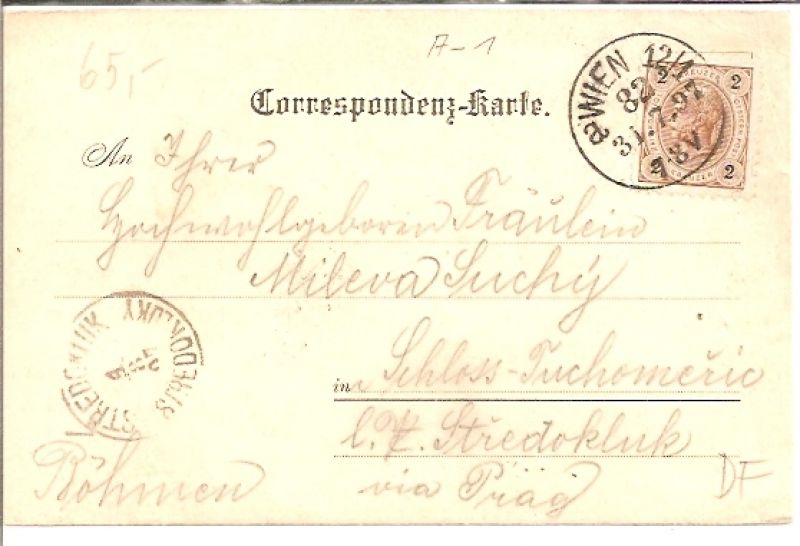 65,-
A-1
Correspondenz-Karte.
WIEN 12/1
82
31.7.97
7.8V
2 KREUZER 2
2 KREUZER 2
An Ihrer
Hochwohlgeboren Fräulein
Mileva Suchý
in Schloss-Tuchoměřic
l. P. Středokluk
via Prag
Böhmen
STREDOKLUK
STŘEDOKLUKY
DF